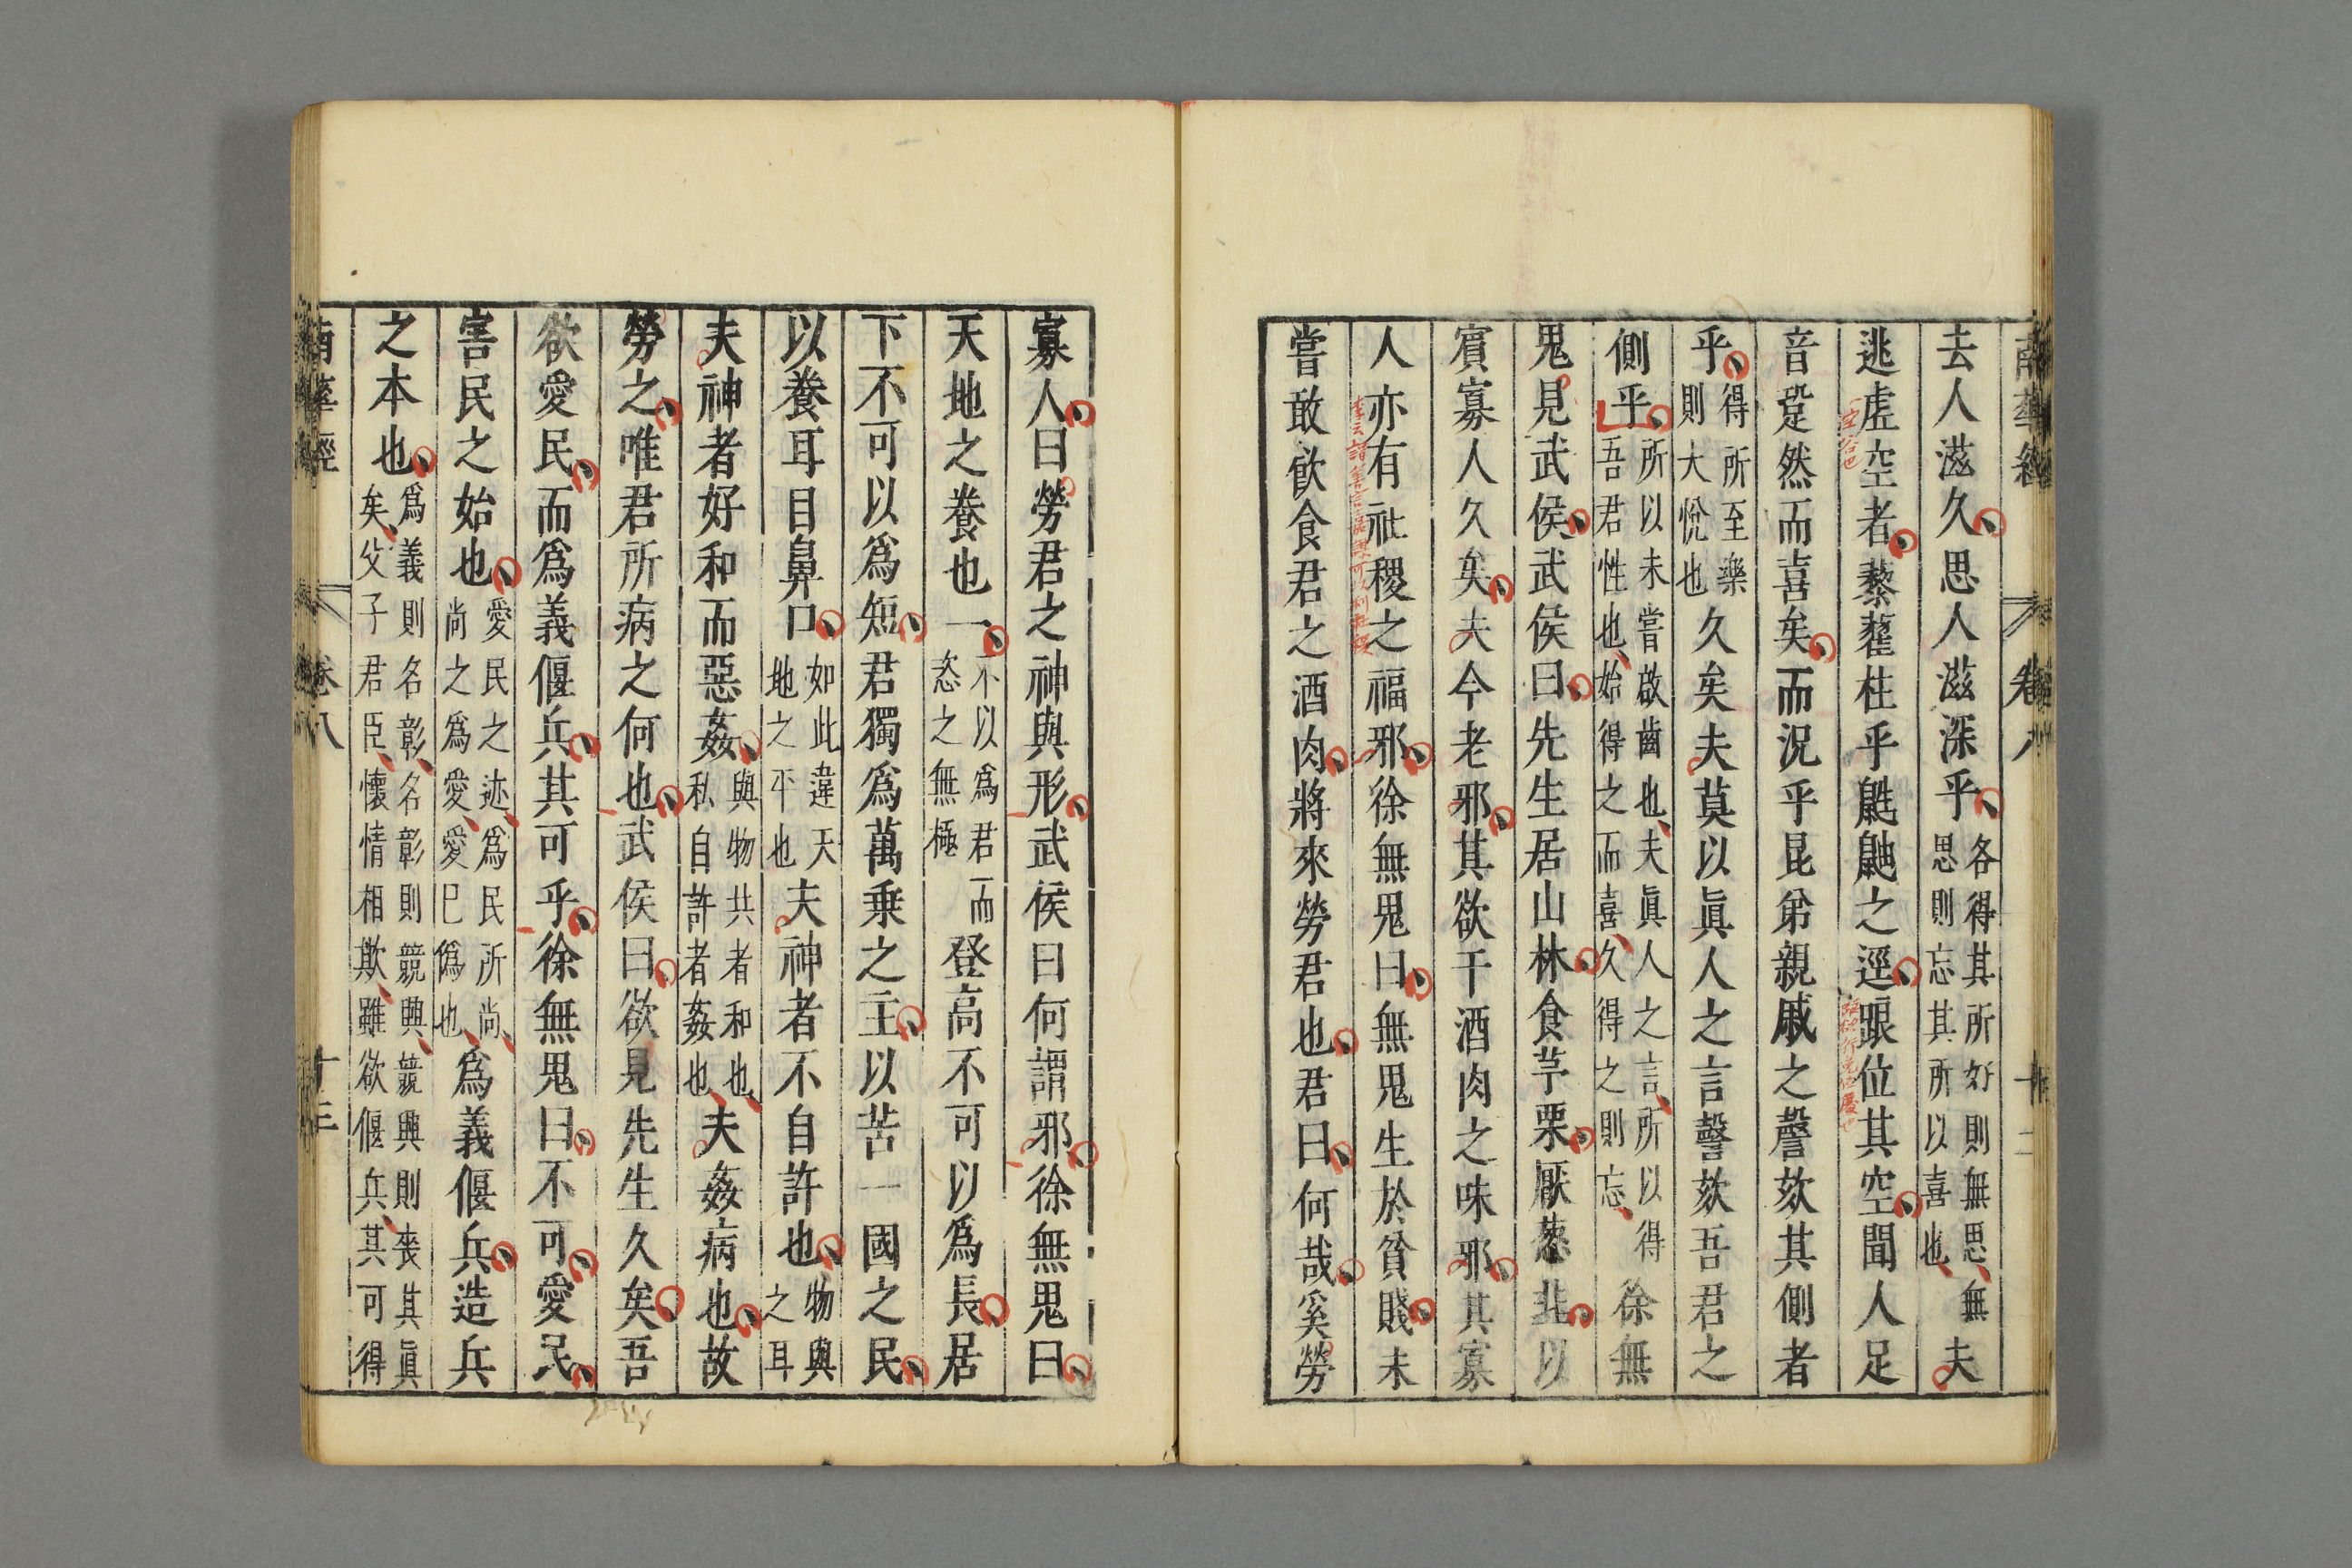 南華經 卷八 十二
去人滋久思人滋深乎各得其所好則無思無思則忘其所以喜也夫
逃虛空者藜藿柱乎鼪鼬之逕踉位其空聞人足
音跫然而喜矣而況乎昆弟親戚之謦欬其側者
乎得所至樂則大悅也久矣夫莫以眞人之言謦欬吾君之
側乎所以未嘗啟齒也夫眞人之言所以得吾君性也始得之而喜久得之則忘徐無
鬼見武侯武侯曰先生居山林食芧栗厭蔥韭以
賓寡人久矣夫今老邪其欲干酒肉之味邪其寡
人亦有社稷之福邪徐無鬼曰無鬼生於貧賤未
嘗敢飲食君之酒肉將來勞君也君曰何哉奚勞
寡人曰勞君之神與形武侯曰何謂邪徐無鬼曰
天地之養也一不以爲君而恣之無極登高不可以爲長居
下不可以爲短君獨爲萬乗之主以苦一國之民
以養耳目鼻口如此違天地之平也夫神者不自許也物與之耳
夫神者好和而惡姦與物共者和也私自許者姦也夫姦病也故
勞之唯君所病之何也武侯曰欲見先生久矣吾
欲愛民而爲義偃兵其可乎徐無鬼曰不可愛民
害民之始也愛民之迹爲民所尚尚之爲愛愛已僞也爲義偃兵造兵
之本也爲義則名彰名彰則競興競興則喪其眞矣父子君臣懷情相欺雖欲偃兵其可得
南華經 卷八 十三